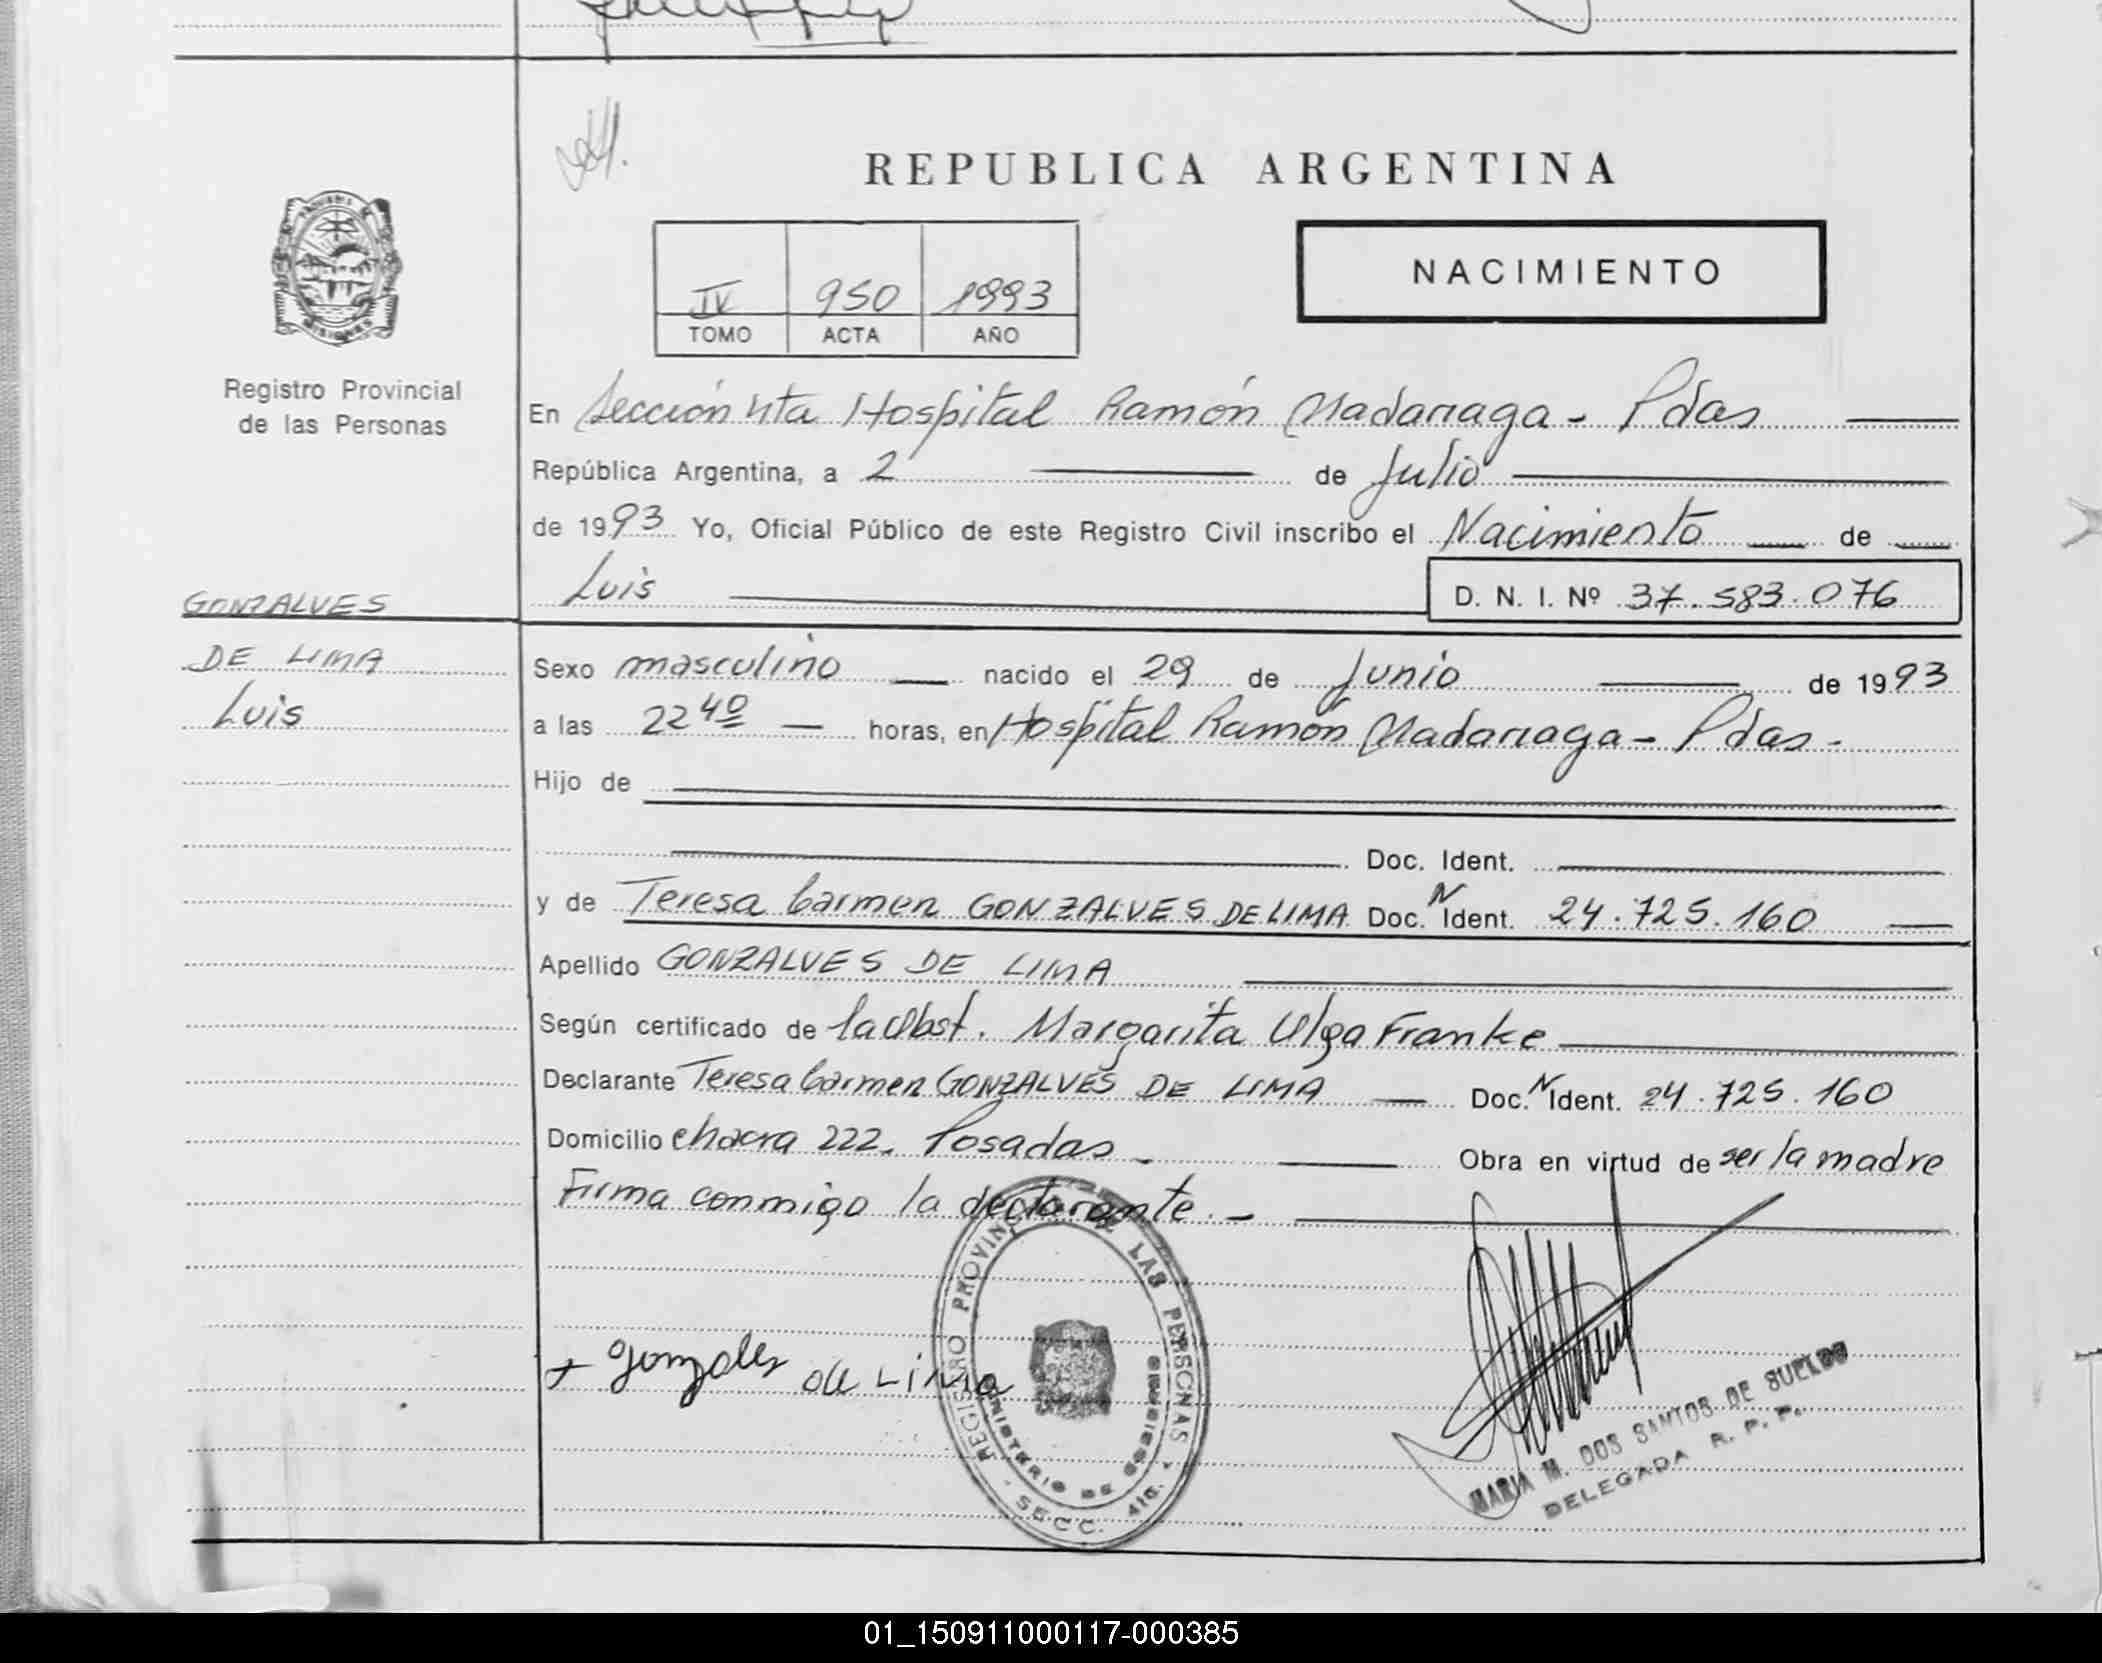 REPUBLICA ARGENTINA
NACIMIENTO
IV 950 1993
TOMO ACTA AÑO
MISIONES
Registro Provincial
de las Personas
En Sección 4ta Hospital Ramón Madariaga - Pdas
República Argentina, a 2 de Julio
de 1993 Yo, Oficial Público de este Registro Civil inscribo el Nacimiento de
Luis D. N. I. Nº 37.583.076
GONZALVES
DE LIMA
Luis
Sexo masculino nacido el 29 de Junio de 1993
a las 22 40 horas, en Hospital Ramón Madariaga - Pdas -
Hijo de
Doc. Ident.
y de Teresa Carmen GONZALVES DE LIMA Doc. N Ident. 24.725.160
Apellido GONZALVES DE LIMA
Según certificado de la Obst. Margarita Olga Franke
Declarante Teresa Carmen GONZALVES DE LIMA Doc. N Ident. 24.725.160
Domicilio chacra 222. Posadas - Obra en virtud de ser la madre
Firma conmigo la declarante. -
+ gonzales de Lima
REGISTRO PROVINCIAL DE LAS PERSONAS
MINISTERIO DE GOBIERNO
SECC. 4ta.
MARIA M. DOS SANTOS DE SUELDO
DELEGADA R. P. P.
01_150911000117-000385